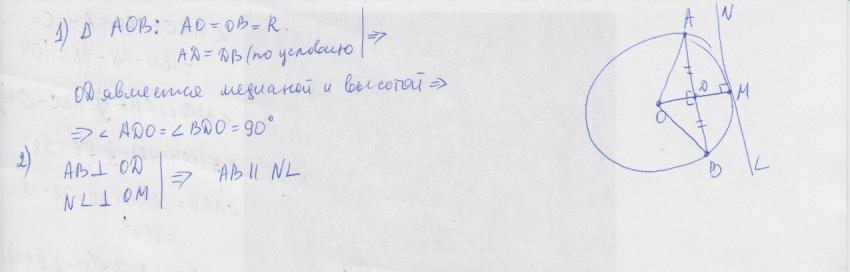 1) Δ AOB: AO = OB = R.
AD = DB (по условию | ⇒
OD является медианой и высотой ⇒
⇒ ∠ ADO = ∠ BDO = 90°
2)
AB ⊥ OD
NL ⊥ OM | ⇒ AB ∥ NL.
A
N
D
M
O
B
L